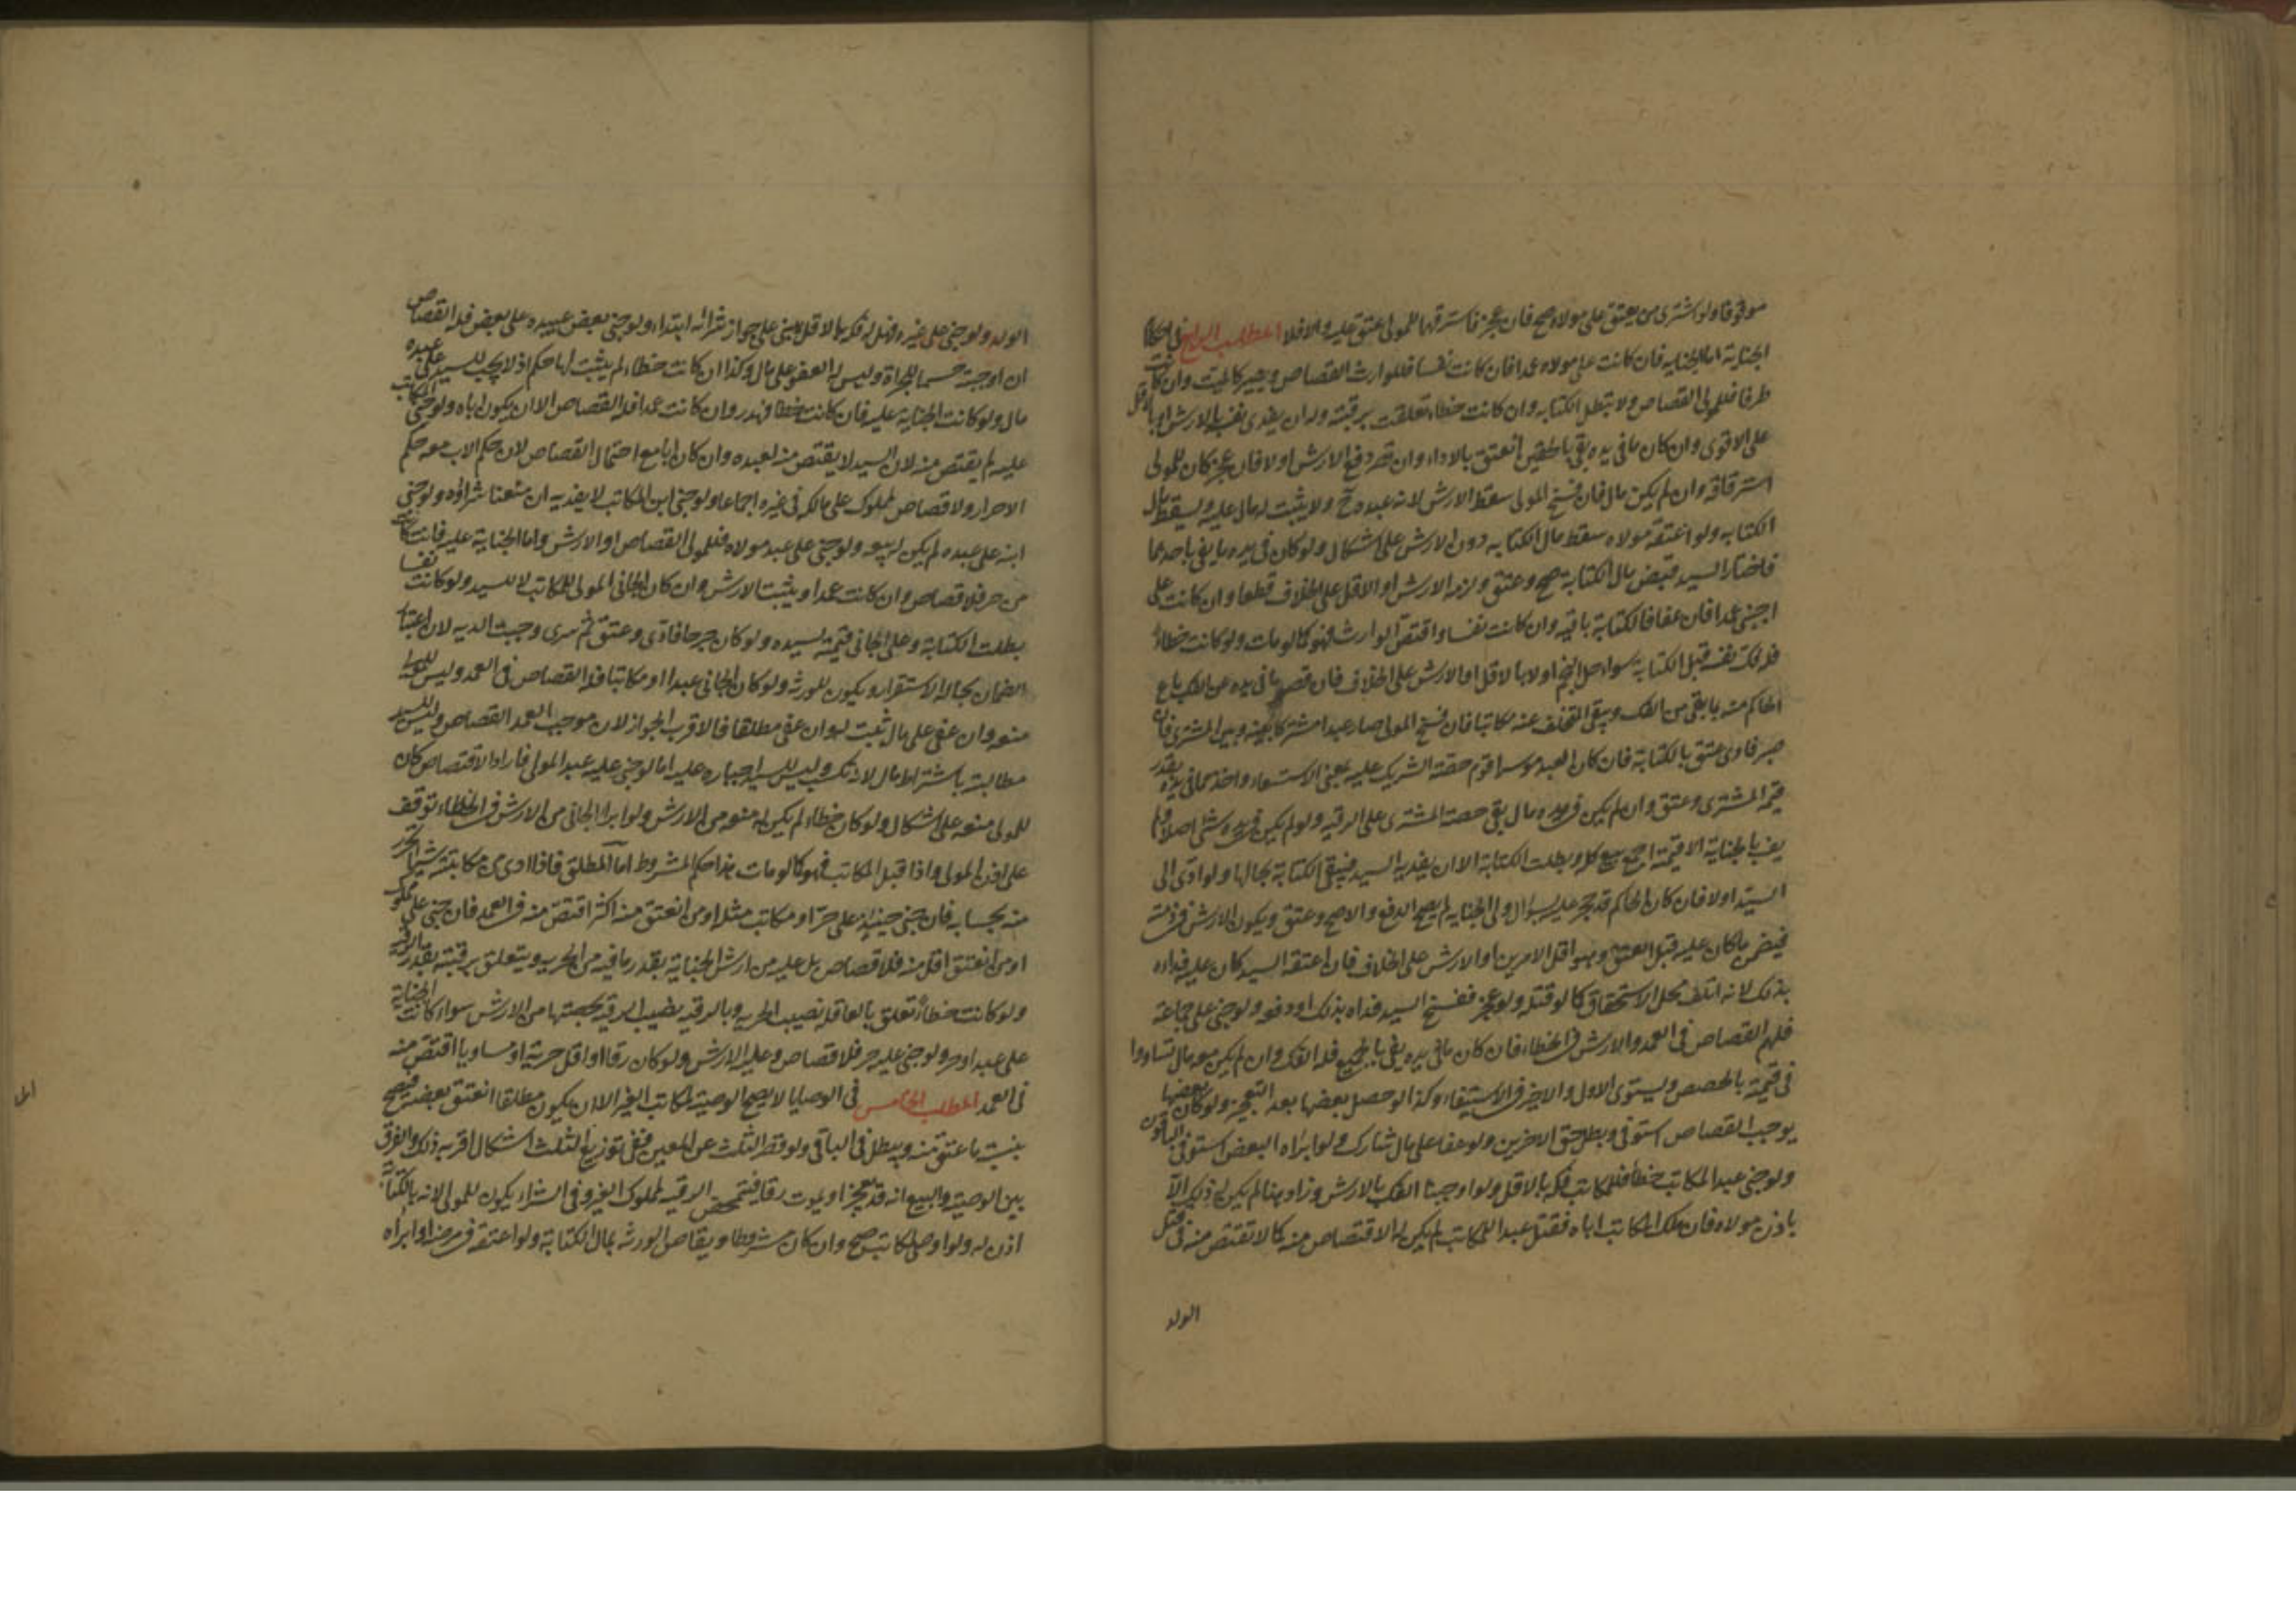 موقوفا ولو اشترى من يعتق على مولاه صح فان عجز فاسترقهما المولى عتق عليه والا فلا المطلب الرابع في احكام
الجناية اما الجناية فان كانت على مولاه عمدا فان كانت نفسا فللوارث القصاص ويصير كالميت وان كانت
طرفا فللمولى القصاص ولا تبطل الكتابه وان كانت خطاء تعلقت برقبته وله ان يفدى نفسه بالارش او بالاقل
على الاقوى وان كان ما في يده يفي بالحقين انعتق بالاداء وان قصر دفع الارش اولا فان عجز كان للمولى
استرقاقه وان لم يكن مال فان فسخ المولى سقط الارش لانه عبده ح ولا يثبت له مال عليه ويسقط مال
الكتابه ولو اعتقه مولاه سقط مال الكتابه دون الارش على اشكال ولو كان في يده ما يفي باحدهما
فاختار السيد قبض مال الكتابة صح وعتق ولزمه الارش او الاقل على الخلاف قطعا وان كانت على
اجنبي عمدا فان عفا فالكتابة باقيه وان كانت نفسا واقتص الوارث فهو كما لو مات ولو كانت خطاء
فله فك نفسه قبل الكتابه سواء حل النجم اولا بالاقل او الارش على الخلاف فان قصر ما في يده عن الفك باع
الحاكم منه ما بقي من الفك ويبقى المتخلف عنه مكاتبا فان فسخ المولى صار عبدا مشتركا بينه وبين المشترى فان
صبر فادى عتق بالكتابة فان كان العبد موسرا قوم حصة الشريك عليه بمعنى الاستسعاء واخذ مما في يده بقدر
قيمة المشترى وعتق وان لم يكن في يده مال بقي حصة المشترى على الرقيه ولو لم يكن في يده شئ اصلا ولم
يف بالجناية الا قيمته اجمع بيع كله وبطلت الكتابة الا ان يفديه السيد فيبقى الكتابة بحالها ولو ادى الى
السيد اولا فان كان الحاكم قد حجر عليه بسؤال ولى الجنايه لم يصح الدفع والا صح وعتق ويكون الارش في ذمته
فيضمن ما كان عليه قبل العتق وهو اقل الامرين او الارش على الخلاف فان اعتقه السيد كان عليه فداؤه
بذلك لانه اتلف محل الاستحقاق كما لو قتله ولو عجز ففسخ السيد فداه بذلك او دفعه ولو جنى على جماعة
فلهم القصاص في العمد والارش في الخطاء فان كان ما في يده يفي بالجميع فله الفك وان لم يكن معه مال تساووا
في قيمته بالحصص ويستوى الاول والاخير في الاستيفاء وكذا لو حصل بعضها بعد التعجيز ولو كان بعضها
يوجب القصاص استوفى وبطل حق الاخرين ولو عفا على مال شارك ولو ابراه البعض استوفى الباقون
ولو جنى عبد المكاتب خطأ فللمكاتب فكه بالاقل ولو اوجبنا الفك بالارش وزاد هنا لم يكن له ذلك الا
باذن مولاه فان ملك المكاتب اباه فقتل عبدا للمكاتب لم يكن له الاقتصاص منه كما لا تقتص منه في قتل
الولد
الولد ولو جنى على غيره فهل له فكه بالاقل يبنى على جواز شرائه ابتداء ولو جنى بعض عبيده على بعض فله القصاص
ان اوجبته حسما للجراة وليس له العفو على مال وكذا ان كانت خطاء لم يثبت لها حكم اذ لا يجب للسيد على عبده
مال ولو كانت الجنايه عليه فان كانت خطا فهدر وان كانت عمدا فله القصاص الا ان يكون اباه ولو جنى المكاتب
عليه لم يقتص منه لان السيد لا يقتص منه لعبده وان كان ابا مع احتمال القصاص لان حكم الاب معه حكم
الاحرار ولا قصاص لمملوك على مالكه في غيره اجماعا ولو جنى ابن المكاتب لا يفديه ان منعنا شراؤه ولو جنى
ابنه على عبده لم يكن له بيعه ولو جنى على عبد مولاه فللمولى القصاص او الارش واما الجناية عليه فان كانت
من حر فلا قصاص وان كانت عمدا ويثبت الارش وان كان الجاني المولى للمكاتب لا للسيد ولو كانت نفسا
بطلت الكتابة وعلى الجاني قيمته لسيده ولو كان جرحا فادى وعتق ثم سرى وجبت الديه لان اعتبار
الضمان بحالة الاستقرار ويكون للورثه ولو كان الجاني عبدا او مكاتبا فله القصاص في العمد وليس للمولى
منعه وان عفى على مال ثبت له وان عفى مطلقا فالاقرب الجواز لان موجب العمد القصاص وليس للسيد
مطالبته باشتراط مال لانه تكسب وليس للسيد اجباره عليه اما لو جنى عليه عبد المولى فاراد الاقتصاص كان
للمولى منعه على اشكال ولو كان خطاء لم يكن له منعه من الارش ولو ابرا الجاني من الارش في الخطاء توقف
على اذن المولى واذا قتل المكاتب فهو كما لو مات هذا حكم المشروط اما المطلق فاذا ادى من مكاتبته شيئا تحرر
منه بحسابه فان جنى حينئذ على حر او مكاتب مثله او من انعتق منه اكثر اقتص منه في العمد فان جنى على مملوك
او من انعتق اقل منه فلا قصاص بل عليه من ارش الجناية بقدر ما فيه من الحريه ويتعلق برقبته بقدر ما فيه
ولو كانت خطاء تعلق بالعاقله نصيب الحريه وبالرقبه نصيب الرقيه بحصتها من الارش سواء كانت الجناية
على عبد او حر ولو جنى عليه حر فلا قصاص وعليه الارش ولو كان رقا او اقل حرية او مساويا اقتص منه
في العمد المطلب الخامس في الوصايا لا يصح الوصية لمكاتب الغير الا ان يكون مطلقا انعتق بعضه فيصح
بنسبة ما عتق منه ويبطل في الباقي ولو قصر الثلث عن المعين ففي توزيع الثلث اشكال اقربه ذلك والفرق
بين الوصية والبيع انه قد يعجز او يموت رقا فتمحض الرقيه لمملوك الغير وفي الشراء يكون للمولى لانه بالكتابة
اذن له ولو اوصى لمكاتبه صح وان كان مشروطا ويقاص الورثه بمال الكتابة ولو اعتقه في مرضه او ابراه